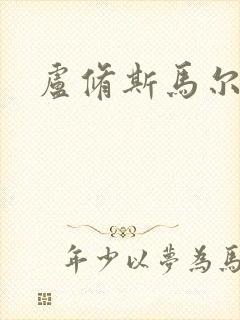 盧脩斯馬尔
年少以夢為馬